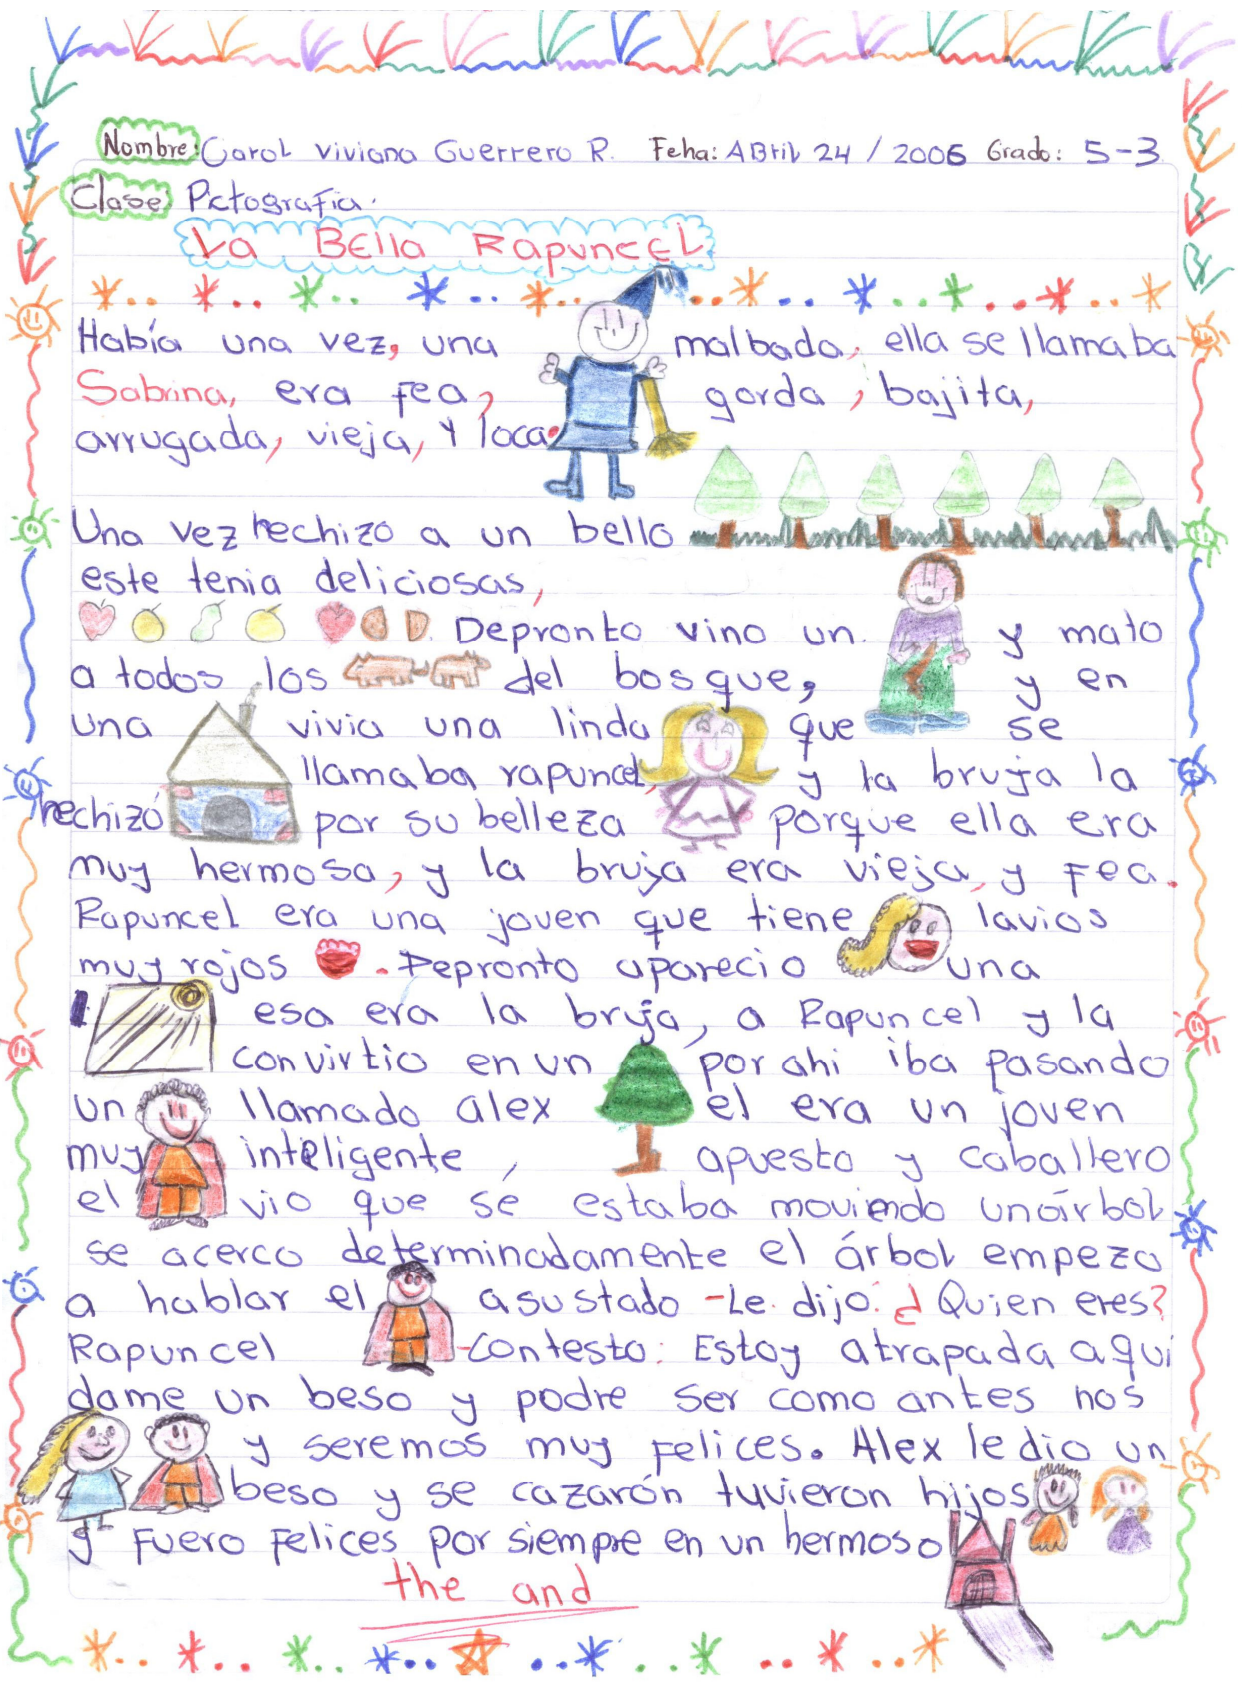 Nombre: Carol Viviana Guerrero R. Feha: ABril 24 / 2006 Grado: 5-3
Clase: Pictografía.
La BElla RapuncEL
Había una vez, una malbada, ella se llamaba
Sabrina, era fea, gorda, bajita,
arrugada, vieja, y loca.
Una vez hechizo a un bello
este tenia deliciosas,
Depronto vino un y mato
a todos los del bosque, y en
una vivia una linda que se
llamaba rapuncel, y la bruja la
hechizó por su belleza porque ella era
muy hermosa, y la bruja era vieja, y fea.
Rapuncel era una joven que tiene lavios
muy rojos . Depronto aparecio una
esa era la bruja, a Rapuncel y la
convirtio en un por ahi iba pasando
un llamado alex el era un joven
muy inteligente, apuesto y caballero
el vio que se estaba moviendo un árbol
se acerco determinadamente el árbol empezo
a hablar el asustado -Le dijo: ¿Quien eres?
Rapuncel -contesto: Estoy atrapada aqui
dame un beso y podre ser como antes nos
y seremos muy felices. Alex le dio un
beso y se cazarón tuvieron hijos
y fuero felices por siempre en un hermoso
the and